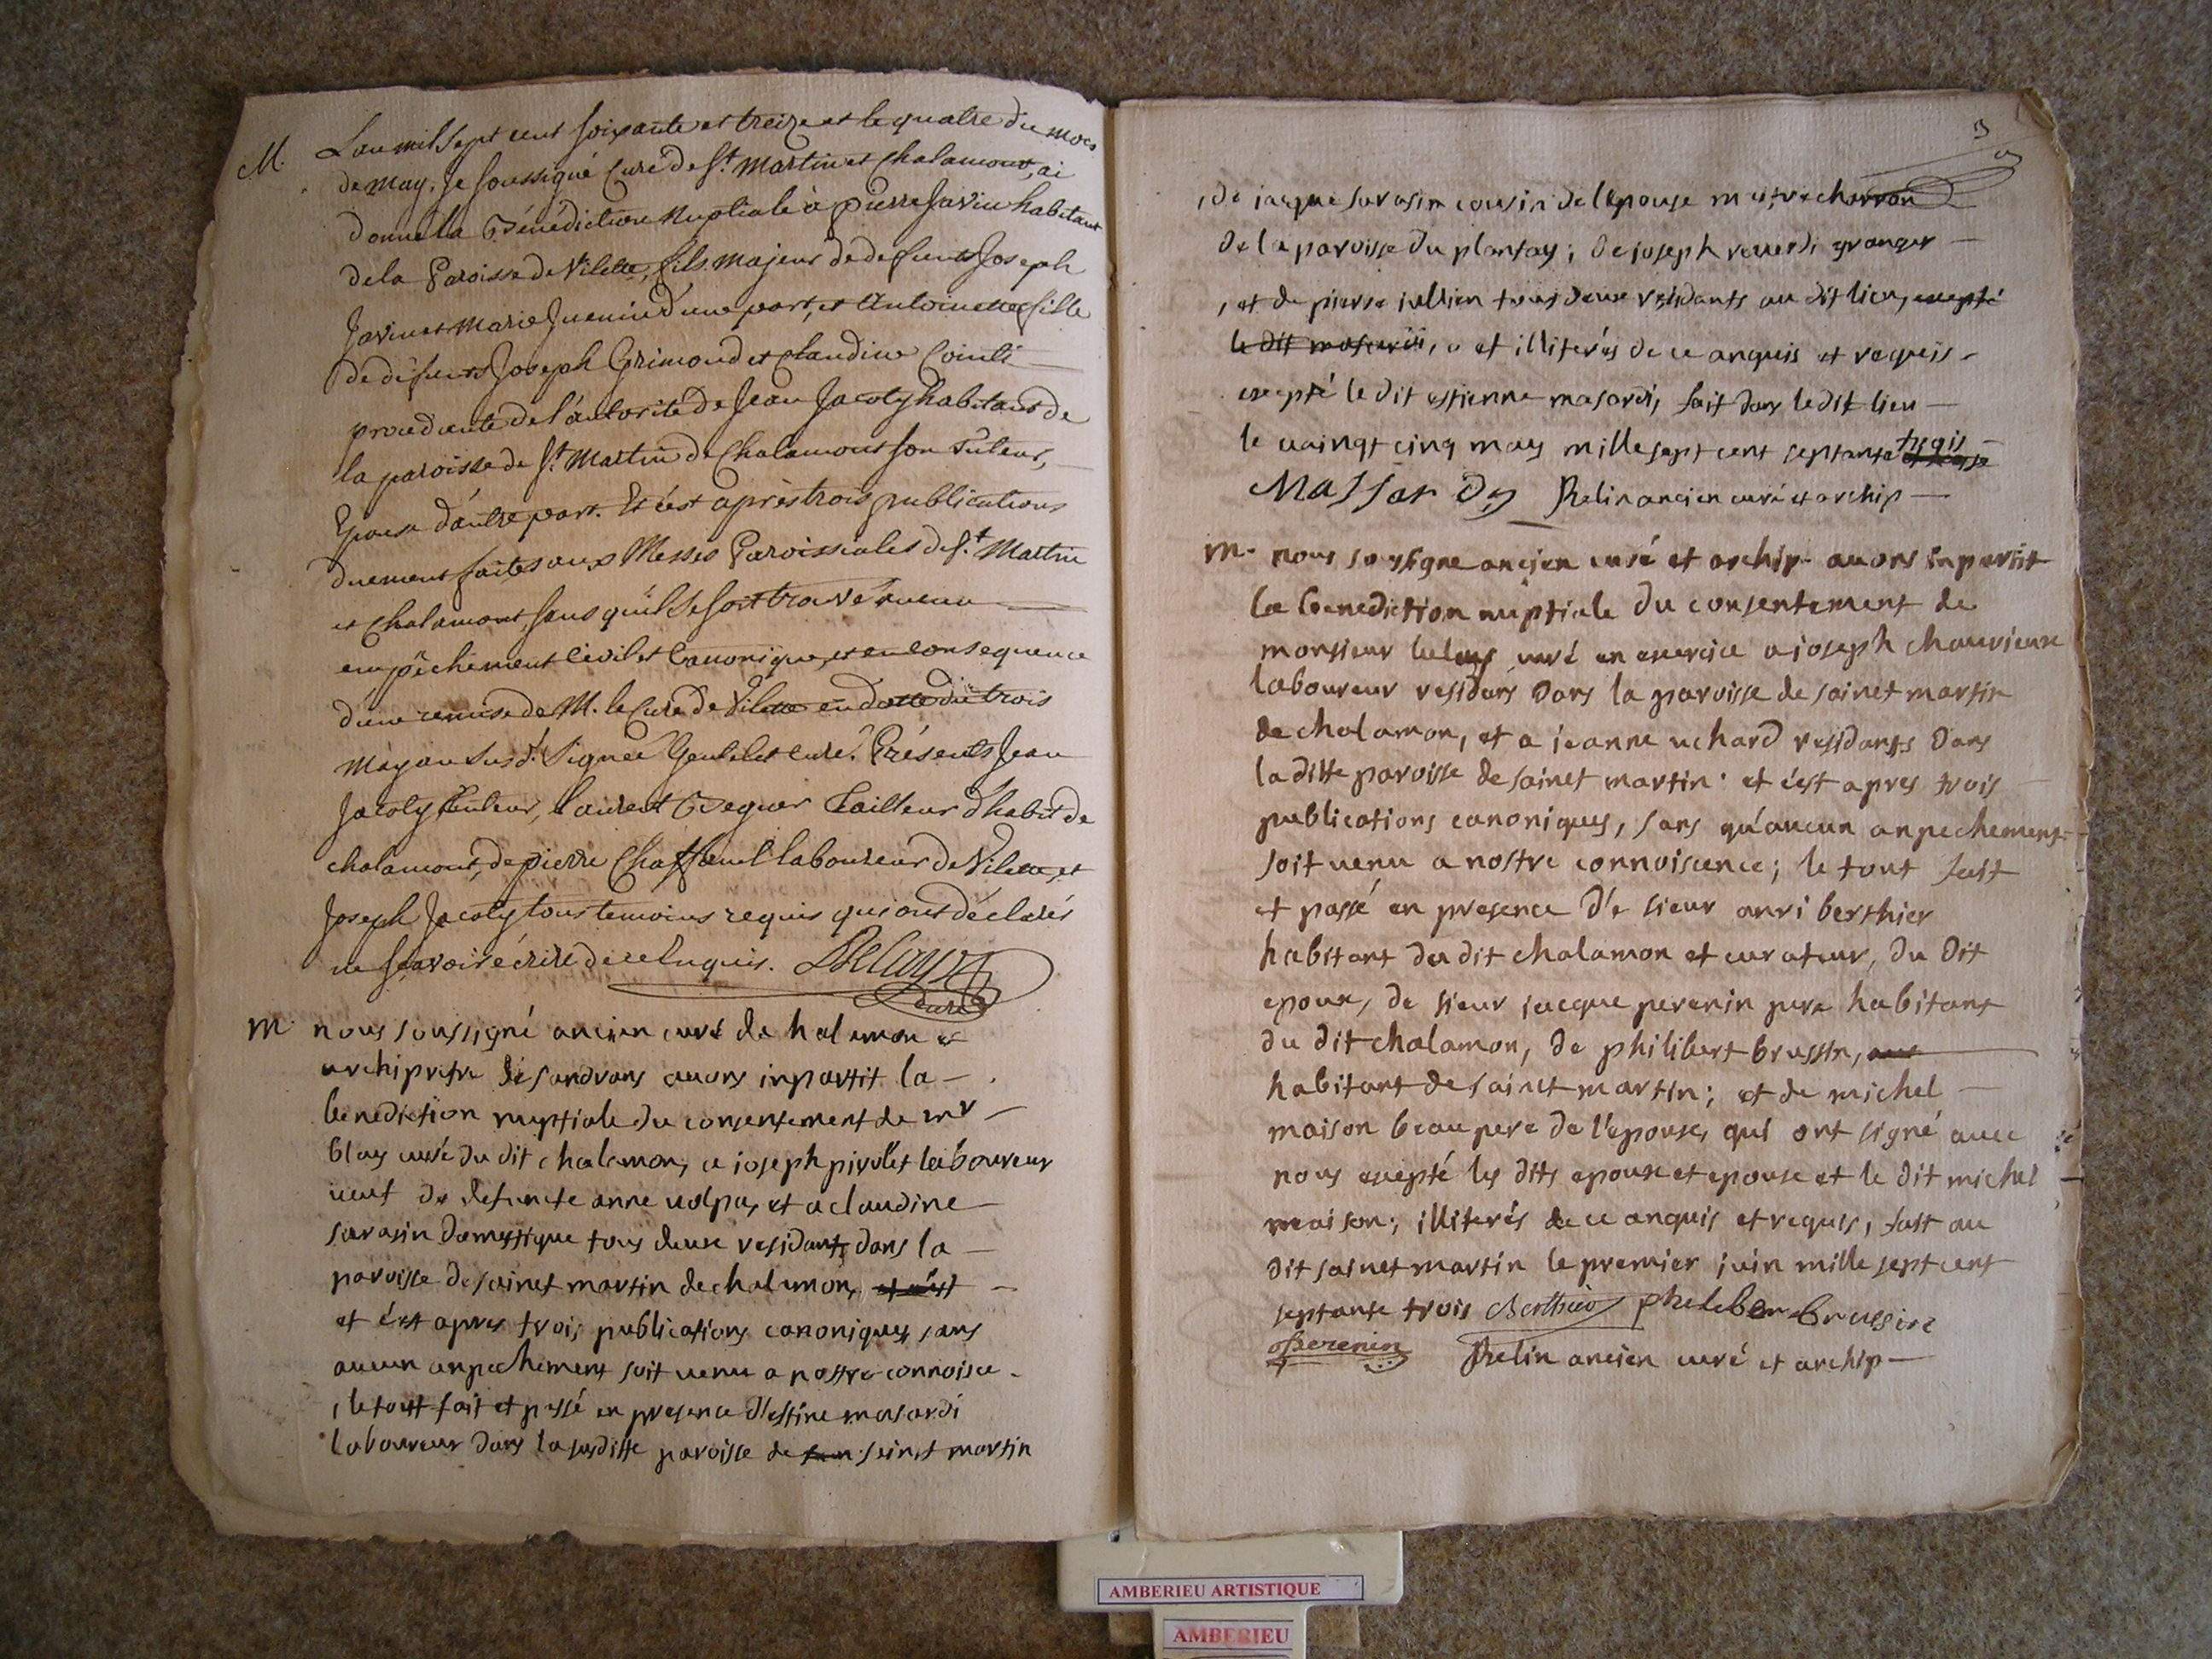 M. L'an mil sept cent soixante et treize et le quatre du mois
de may, je soussigné Curé de St. Martin et Chalamont, ai
donné la Bénédiction Nuptiale à pierre Javin habitant
de la Paroisse de Vilette, fils majeur de defunts Joseph
Javin et Marie Juenin d'une part, et Antoinette fille
de défunts Joseph Grimond et Claudine Cointi
procedante de l'autorité de Jean Jacoty habitant de
la paroisse de St. Martin de Chalamont son Tuteur,
Epouse d'autre part. Et c'est après trois publications
duement faites aux Messes Paroissiales de St. Martin
et Chalamont, sans qu'il se soit trouvé aucun
empêchement Civil et Canonique, et en consequence
d'une remise de M. le Curé de Vilette en datte du trois
May an susd. Signée Curé. Présents Jean
Jacoty tuteur, Laurent Tailleur d'habit de
chalamont, de pierre laboureur de Vilette, et
Joseph Jacoty tous temoins requis qui ont déclarés
ne sçavoir écrire de ce Enquis.
Curé
m. nous sousigné ancien curé de halamon et
archipretre de sandrans avons inpartit la
benediction nuptiale du consentement de mr
blay curé du dit chalamon, a joseph pivolet laboureur
veuf de defuncte anne volpa, et a claudine
sarasin domestique tous deux residants dans la
paroisse de sainct martin de chalamon, et c'est
et c'est apres trois publications canoniques, sans
aucun anpechement soit venu a nostre connoisce
, le tout fait et passé en presence d'estine masardi
laboureur dans la susditte paroisse de sainct martin
3
, de jacque sarasin cousin de l'epouse maitre charron
de la paroisse du plantay; de joseph granger
, et de pierre jullien tous deux residants au dit lieu, exepté
le dit masardi, et illiterés de ce anquis et requis
exepté le dit estienne masardi, fait dans le dit lieu
le vaingt cinq may mille sept cent septante trois
Massardy Relin ancien curé et archip
m. nous sousigne ancien curé et archip. avons inpartit
la benediction nuptiale du consentement de
monsieur curé en exercice a joseph chauvieux
laboureur residans dans la paroisse de sainct martin
de chalamon, et a jeanne uchard residants dans
la ditte paroisse de sainct martin: et c'est apres trois
publications canoniques, sans qu'aucun anpechement
soit venu a nostre connoiscence; le tout fait
et passé en presence de sieur anri berthier
habitant du dit chalamon et curateur, du dit
epoux, de sieur jacque perenin pere habitant
du dit chalamon, de philibert brussin,
habitant de sainct martin; et de michel
maison beaupere de l'epouse, qui ont signé avec
nous exepté les dits epoux et epouse et le dit michel
maison; illiterés de ce anquis et requis, fait au
dit sainct martin le premier juin mille sept cent
septante trois Berthier pheliber brussire
Perenin Relin ancien curé et archip
AMBERIEU ARTISTIQUE
AMBERIEU